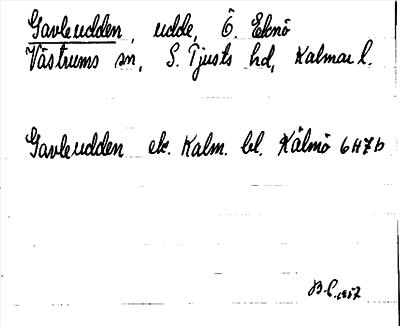 Gavleudden, udde, Ö. Eknö
Västrums sn, S. Tjusts hd, Kalmar l.
Gavleudden ek. Kalm. bl. Kålmö 6H7b
B.C. 1957